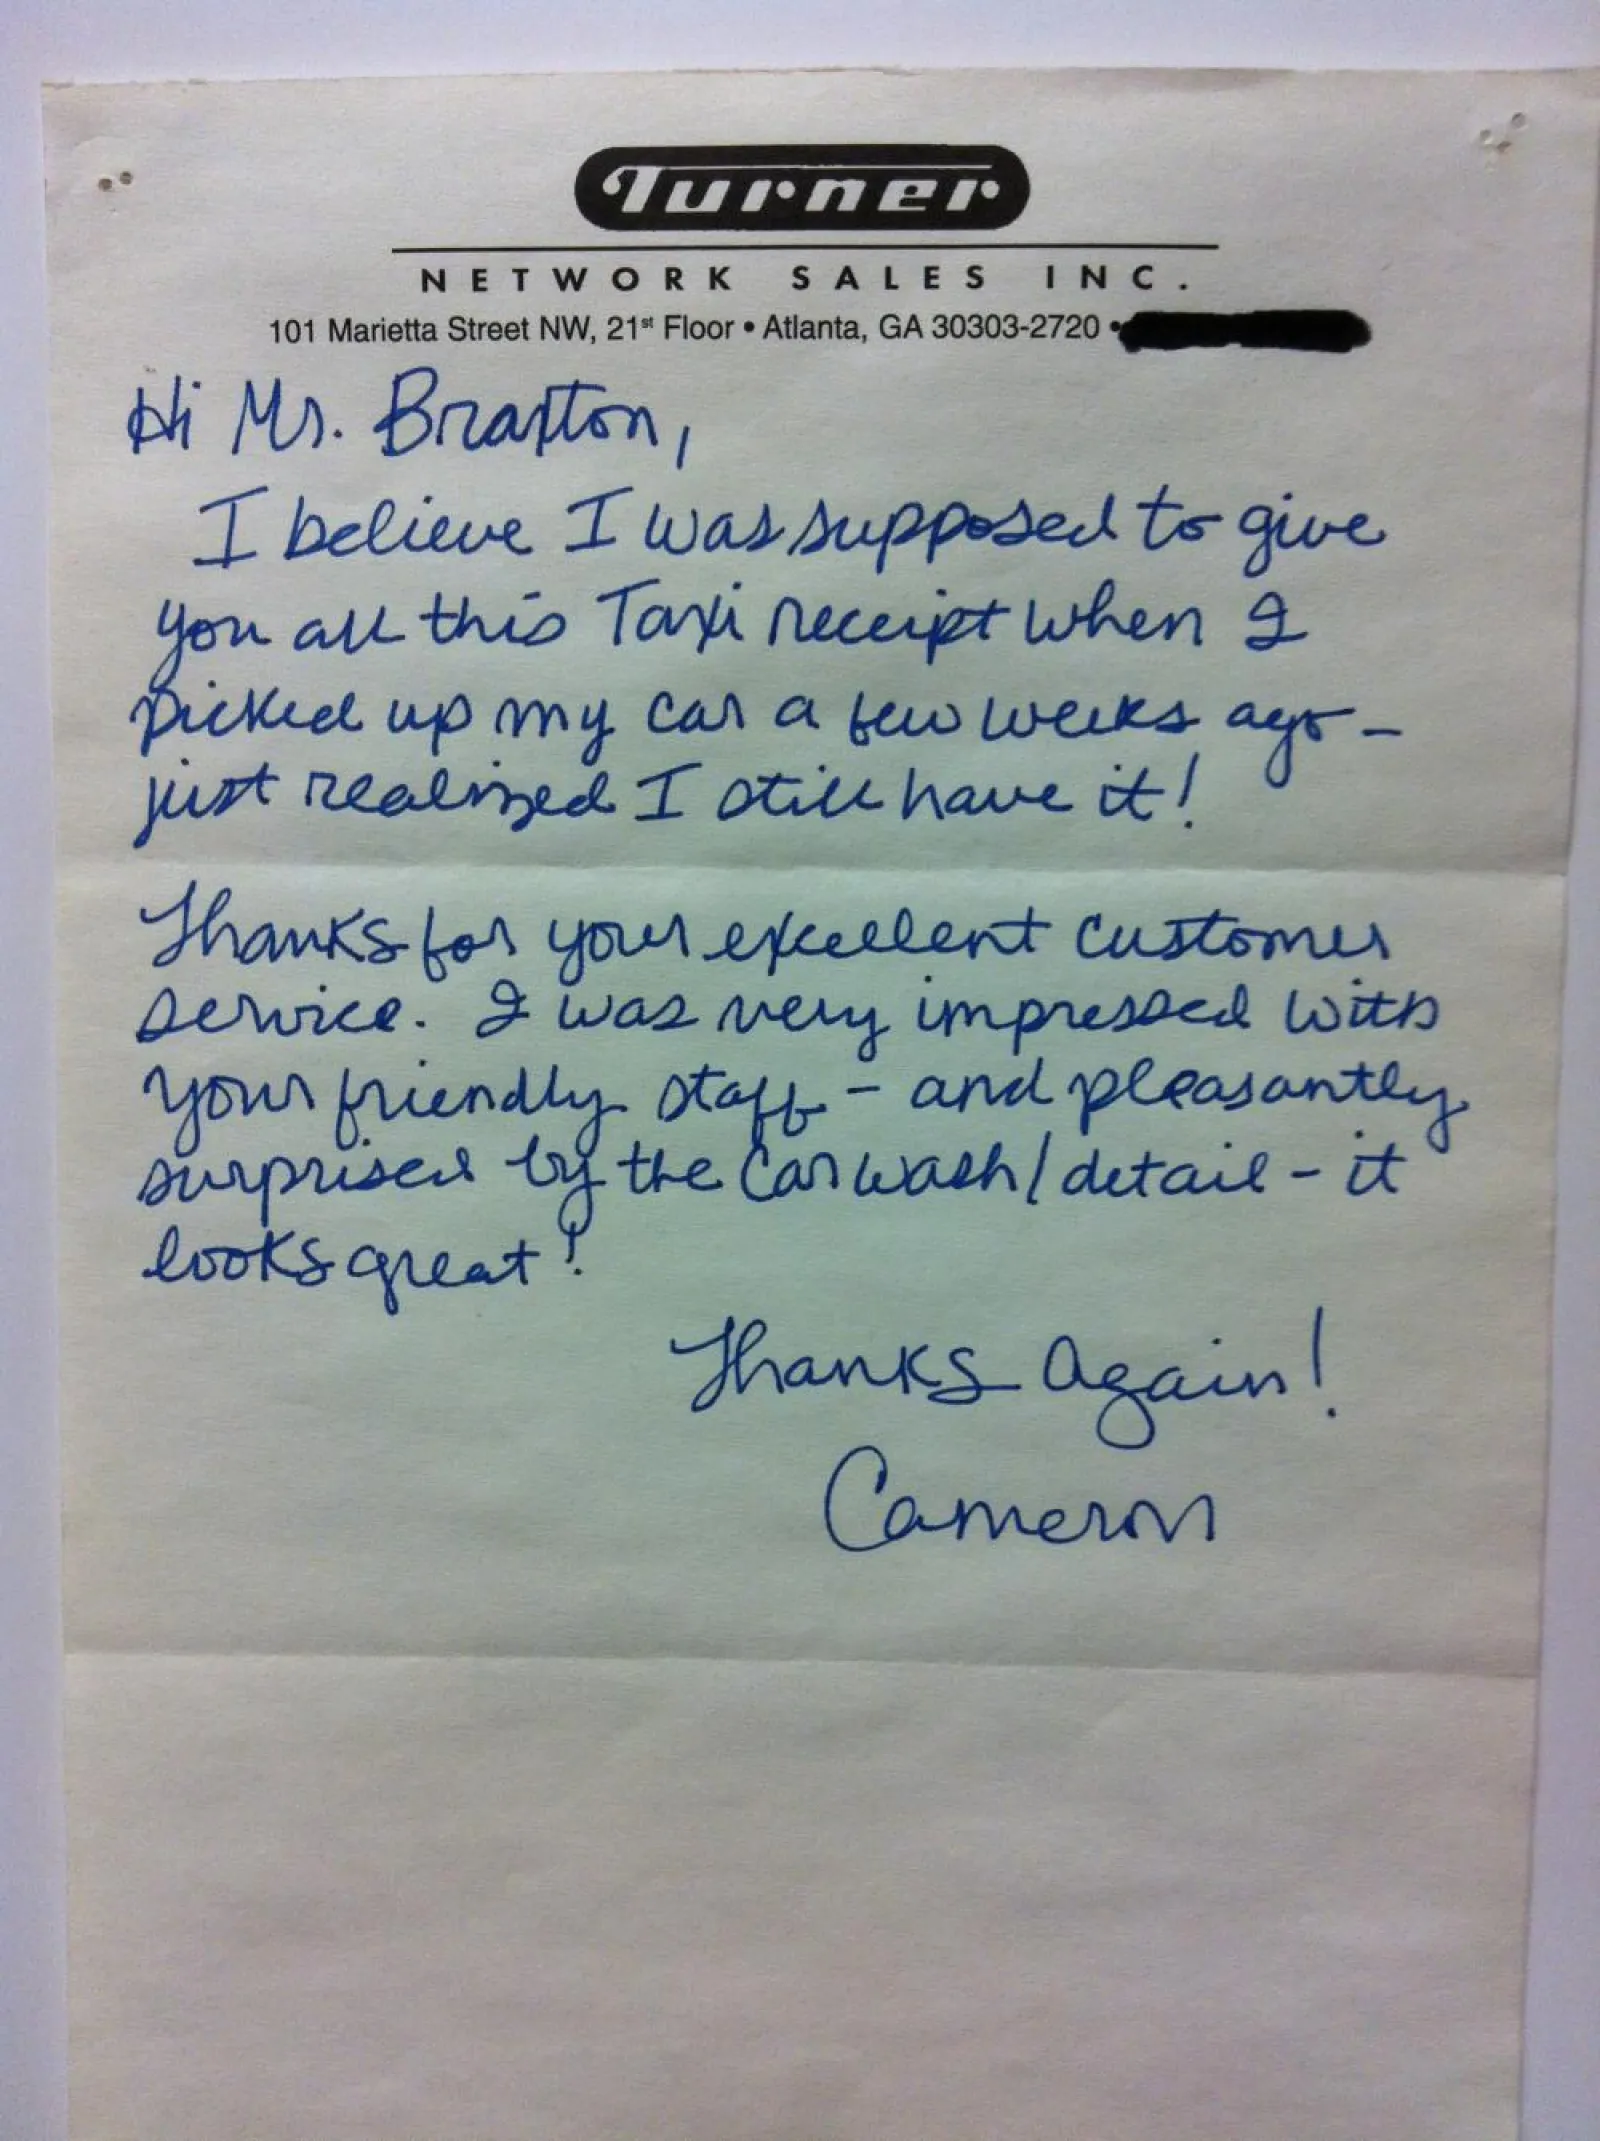 Turner
NETWORK SALES INC.
101 Marietta Street NW, 21st Floor • Atlanta, GA 30303-2720 •
Hi Mr. Braxton,
I believe I was supposed to give
you all this Taxi receipt when I
picked up my car a few weeks ago –
just realized I still have it!
Thanks for your excellent customer
service. I was very impressed with
your friendly staff – and pleasantly
surprised by the car wash/detail – it
looks great!
Thanks Again!
Cameron